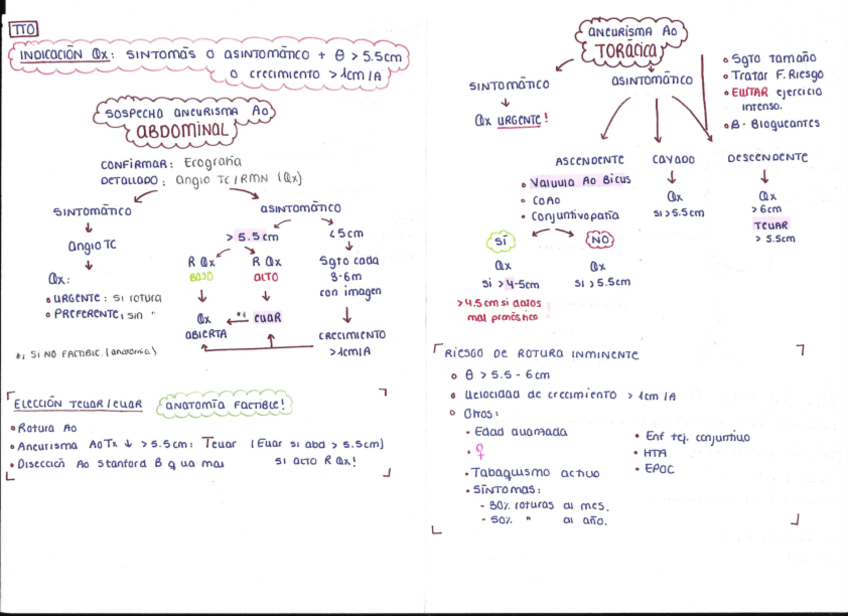 TTO
INDICACIÓN Qx: SINTOMÁS O ASINTOMÁTICO + θ > 5.5cm
O CRECIMIENTO > 1cm/A
SOSPECHO ANEURISMA AO
ABDOMINAL
CONFIRMAR: Ecografía
DETALLADO: Angio TC/RMN (Qx)
SINTOMÁTICO
ASINTOMÁTICO
Angio TC
> 5.5cm
< 5cm
Qx:
• URGENTE: si rotura
• PREFERENTE: sin "
R Qx
BAJO
R Qx
ALTO
Sgto cada
3-6m
con imagen
Qx
ABIERTA
*1
EVAR
CRECIMIENTO
> 1cm/A
*1 SI NO FACTIBLE. (anatomía)
ELECCIÓN TEVAR/EVAR
ANATOMÍA FACTIBLE!
• Rotura Ao
• Aneurisma AoTx ↓ > 5.5cm: Tevar (Evar si abd > 5.5cm)
• Disección Ao Stanford B q va mal
si ALTO R Qx!
ANEURISMA AO
TORÁCICA
SINTOMÁTICO
Qx URGENTE!
ASINTOMÁTICO
• Sgto tamaño
• Tratar F. Riesgo
• EVITAR ejercicio
intenso.
• β-Bloqueantes
ASCENDENTE
• Valvula Ao Bicus
• COAO
• Conjuntivopatía
CAYADO
Qx
si > 5.5cm
DESCENDENTE
Qx
> 6cm
TEVAR
> 5.5cm
SÍ
Qx
si > 4-5cm
> 4.5cm si datos
mal pronóstico
NO
Qx
si > 5.5cm
RIESGO DE ROTURA INMINENTE
• θ > 5.5 - 6cm
• Velocidad de crecimiento > 1cm/A
• Otros:
• Edad avanzada
• ♀
• Tabaquismo activo
• SÍNTOMAS:
- 30% roturas al mes.
- 50% " al año.
• Enf tej. conjuntivo
• HTA
• EPOC